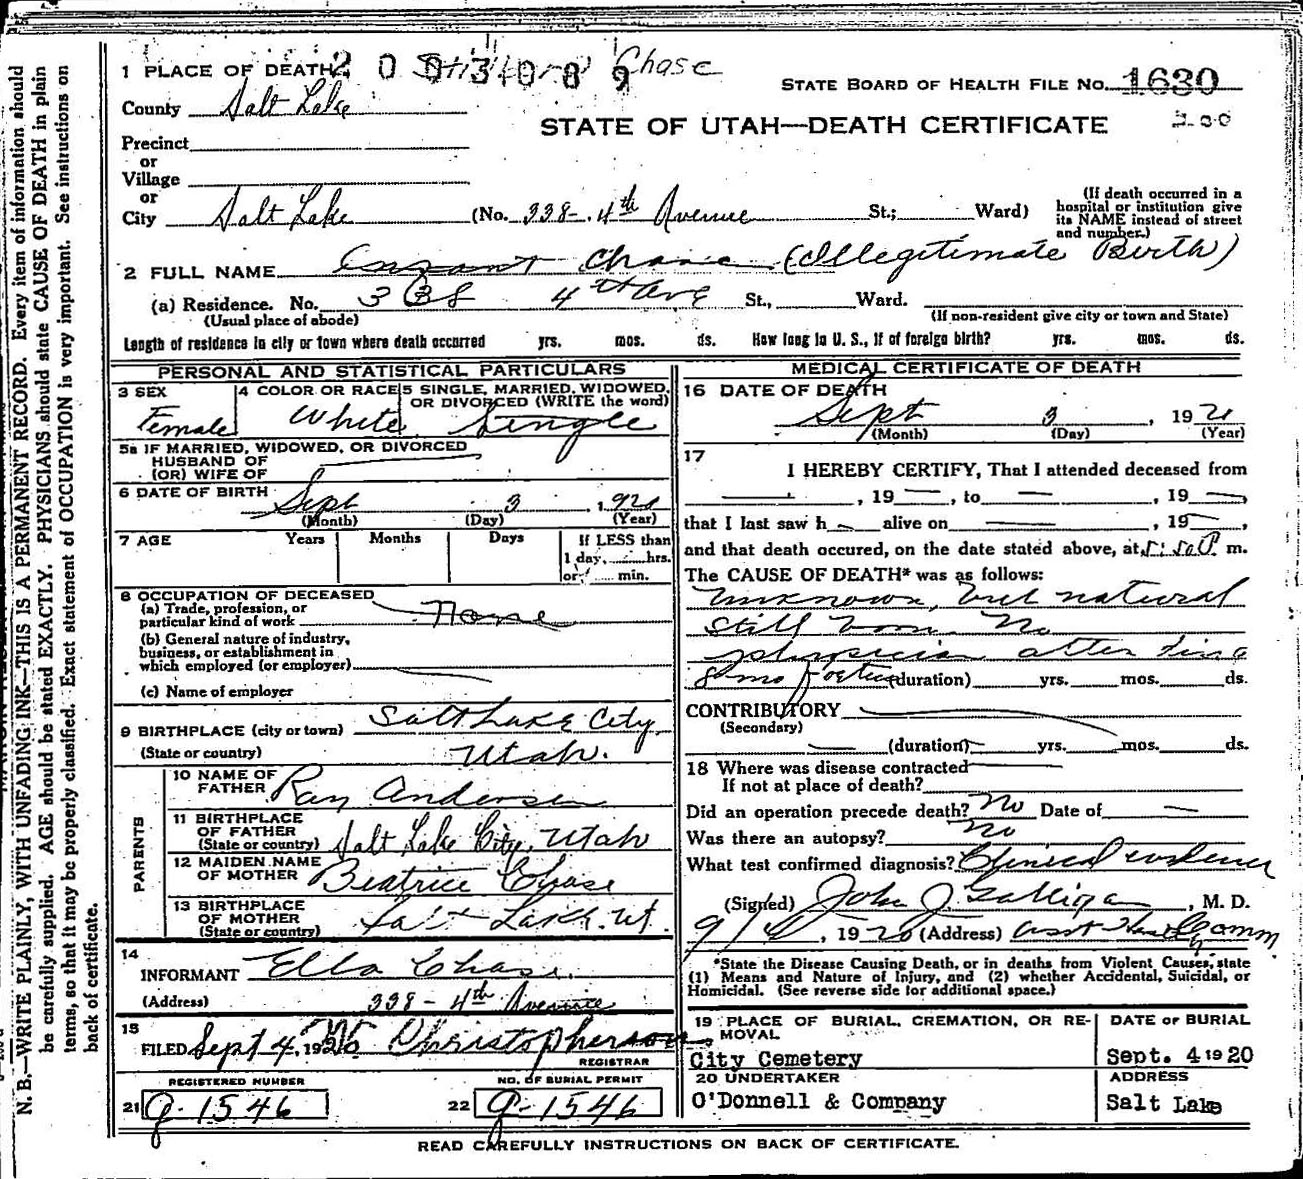 N. B.—WRITE PLAINLY, WITH UNFADING INK—THIS IS A PERMANENT RECORD. Every item of information should
be carefully supplied. AGE should be stated EXACTLY. PHYSICIANS should state CAUSE OF DEATH in plain
terms, so that it may be properly classified. Exact statement of OCCUPATION is very important. See instructions on
back of certificate.
1 PLACE OF DEATH 2 0 0 3 0 8 9 Chase
STATE BOARD OF HEALTH FILE NO. 1630
County Salt Lake
STATE OF UTAH—DEATH CERTIFICATE 200
Precinct
or
Village
or
City Salt Lake (No. 338-4th Avenue St.; Ward)
(If death occurred in a
hospital or institution give
its NAME instead of street
and number.)
2 FULL NAME Chase (Illegitimate Birth)
(a) Residence. No. 338 4th Ave St., Ward.
(Usual place of abode) (If non-resident give city or town and State)
Length of residence in city or town where death occurred yrs. mos. ds. How long in U. S., if of foreign birth? yrs. mos. ds.
PERSONAL AND STATISTICAL PARTICULARS
3 SEX Female
4 COLOR OR RACE White
5 SINGLE, MARRIED, WIDOWED,
OR DIVORCED (WRITE the word)
Single
5a IF MARRIED, WIDOWED, OR DIVORCED
HUSBAND OF
(OR) WIFE OF
6 DATE OF BIRTH Sept 3, 1920
(Month) (Day) (Year)
7 AGE Years Months Days If LESS than
1 day, hrs.
or min.
8 OCCUPATION OF DECEASED
(a) Trade, profession, or
particular kind of work None
(b) General nature of industry,
business, or establishment in
which employed (or employer)
(c) Name of employer
9 BIRTHPLACE (city or town) Salt Lake City
(State or country) Utah.
PARENTS
10 NAME OF
FATHER Ray Andersen
11 BIRTHPLACE
OF FATHER
(State or country) Salt Lake City, Utah
12 MAIDEN NAME
OF MOTHER Beatrice Chase
13 BIRTHPLACE
OF MOTHER
(State or country) Salt Lake. Ut.
14
INFORMANT Ella Chase.
(Address) 338-4th Avenue
15
FILED Sept 4, 1920 Christopherson
REGISTRAR
REGISTERED NUMBER NO. OF BURIAL PERMIT
21 g-1546 22 g-1546
MEDICAL CERTIFICATE OF DEATH
16 DATE OF DEATH
Sept 3, 1920
(Month) (Day) (Year)
17
I HEREBY CERTIFY, That I attended deceased from
, 19 , to , 19 ,
that I last saw h alive on , 19 ,
and that death occured, on the date stated above, at 5:50 P. m.
The CAUSE OF DEATH* was as follows:
Unknown, but natural
Still born. No
physician attending
8 mo foetus (duration) yrs. mos. ds.
CONTRIBUTORY
(Secondary)
(duration) yrs. mos. ds.
18 Where was disease contracted
If not at place of death?
Did an operation precede death? No Date of
Was there an autopsy? No
What test confirmed diagnosis? Clinical evidence
(Signed) John J Galligan, M. D.
9/4, 1920 (Address) Asst Health Comm
*State the Disease Causing Death, or in deaths from Violent Causes, state
(1) Means and Nature of Injury, and (2) whether Accidental, Suicidal, or
Homicidal. (See reverse side for additional space.)
19 PLACE OF BURIAL, CREMATION, OR RE-
MOVAL
City Cemetery
DATE OF BURIAL
Sept. 4 1920
20 UNDERTAKER
O'Donnell & Company
ADDRESS
Salt Lake
READ CAREFULLY INSTRUCTIONS ON BACK OF CERTIFICATE.